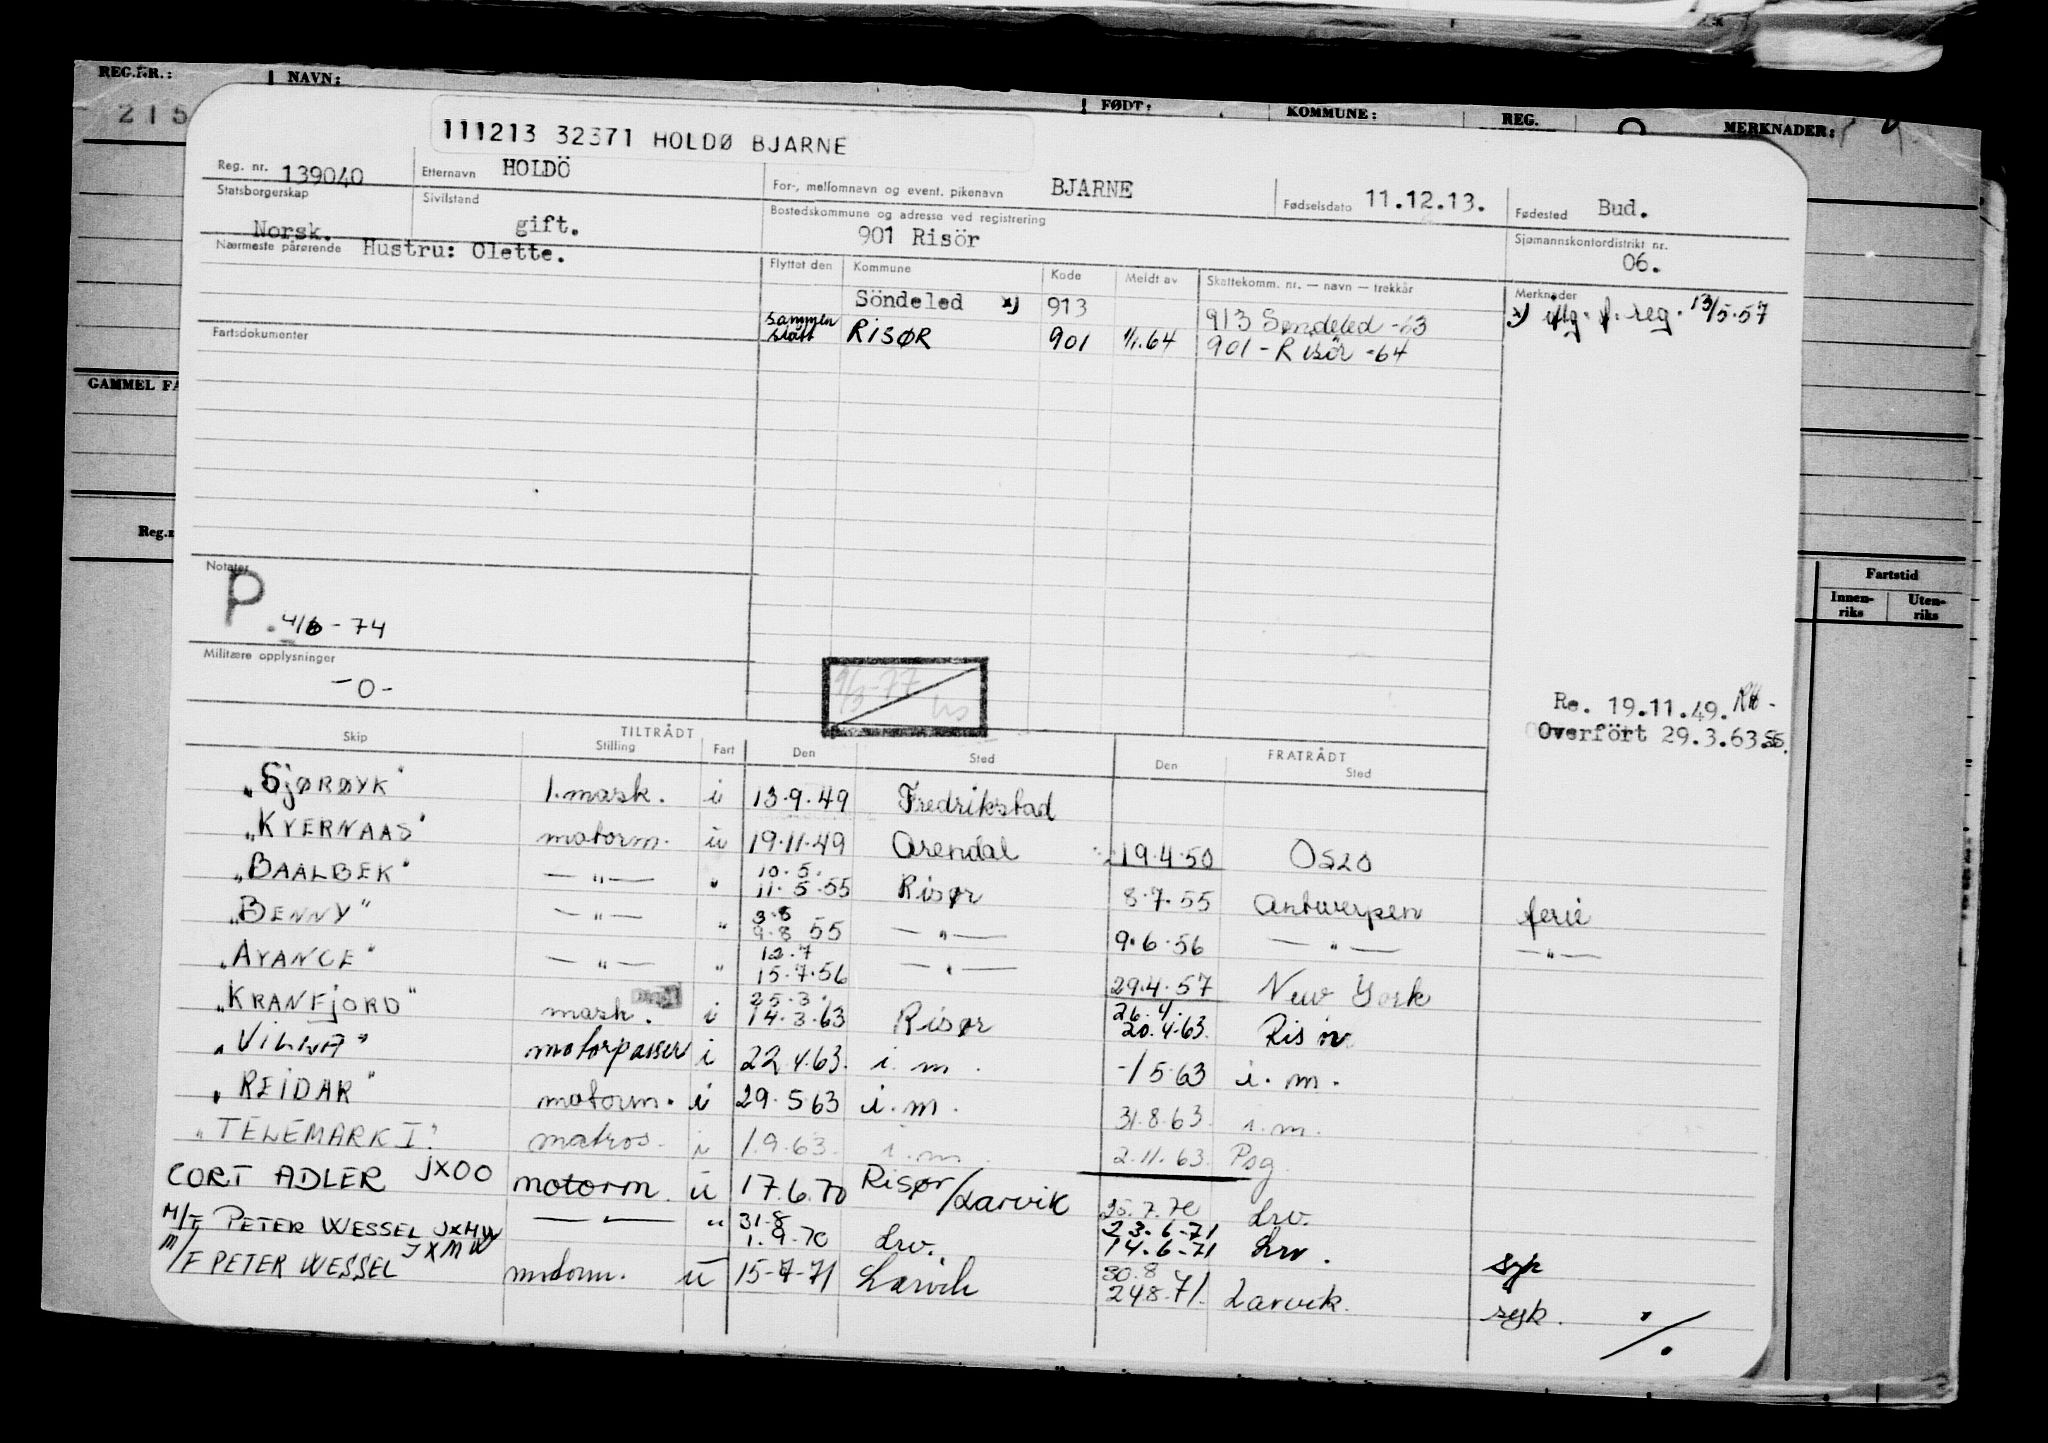 REG.NR.: NAVN: FØDT: KOMMUNE: REG. MERKNADER:
215
111213 32371 HOLDØ BJARNE
Reg. nr. 139040 Etternavn HOLDÖ For-, mellomnavn og event. pikenavn BJARNE Fødselsdato 11.12.13. Fødested Bud.
Statsborgerskap Norsk. Sivilstand gift. Bostedskommune og adresse ved registrering 901 Risör Sjømannskontordistrikt nr. 06.
Nærmeste pårørende Hustru: Olette.
Flyttet den Kommune Kode Meldt av Skattekomm. nr. — navn — trekkår Merknader
Söndeled x) 913 913 Søndeled -63 x) iflg. f. reg. 13/5-57
sammen slått RISØR 901 1/1.64 901 - Risör -64
Fartsdokumenter
GAMMEL FA
Reg.n
Fartstid
Innen-riks Uten-riks
Notater
P. 4/6-74
Militære opplysninger
-0-
9/3-77
Re. 19.11.49.
Overfört 29.3.63.
TILTRÅDT FRATRÅDT
Skip Stilling Fart Den Sted Den Sted
"SJØRØYK" 1. mask. i 13.9.49 Fredrikstad
"KVERNAAS" motorm. u 19.11.49 Arendal 19.4.50 OSLO
"BAALBEK" — " — " 10.5. 11.5.55 Risør 8.7.55 Antwerpen ferie
"BENNY" — " — " 3.8 9.8 55 — " — 9.6.56 — " — — " —
"AVANCE" — " — " 12.7 15.7.56 — " — 29.4.57 New York
"KRANFJORD" mask. i 25.3. 14.3.63 Risør 26.4. 20.4.63. Risør
"VILNA" motorpasser i 22.4.63. i. m. -/5.63 i. m.
"REIDAR" motorm. i 29.5 63 i. m. 31.8.63. i. m.
"TELEMARK I" matros. i 1.9.63. i. m. 2.11.63. Psg.
CORT ADLER JXOO motorm. u 17.6.70 Risør/Larvik 25.7.70 Lrv.
M/F PETER WESSEL JXMW — " — " 31.8 1.9.70 Lrv. 23.6-71 14.6-71 Lrv. syk
M/F PETER WESSEL JXMW motorm. u 15-7-71 Larvik 30.8 24.8.71. Larvik. syk. ./.